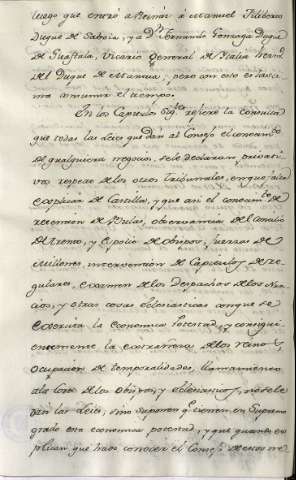 luego que entró a Reinár á Manuel Filiberto
Duque de Saboia, y a Dn Fernando Gonzaga Duque
de Guastala, Vicario General de Italia herm.
del Duque de Mantua, pero con esto es lastima
consumir el tiempo.
En los Capitulos sig.tes refiere la consulta
que todas las Leies que dán al Consejo el conocim.to
de qualquiera negocio, se le declaran privativo
vo respecto de los otros tribunales, en que
de Castilla, y que asi el conocim.to de
retencion de Bulas, observancia del Concilio
de Trento, y Espolio de obispos, fuerzas de
Millones, intervencion de Capitulos de re-
gulares, examen de los despachos de los Nun-
cios, y otras cosas eclesiasticas en que se
exercita la economica potestad, y consigui-
entemente la extrañeza de los reinos,
ocupacion de temporalidades, llamamiento
a la Corte de los obispos, y eclesiasticos, no se le
dán las Leies, sino suponen q.e tienen en supremo
grado esta economica potestad, y que quando ex-
plican que hade conocer el Consejo de estos ne